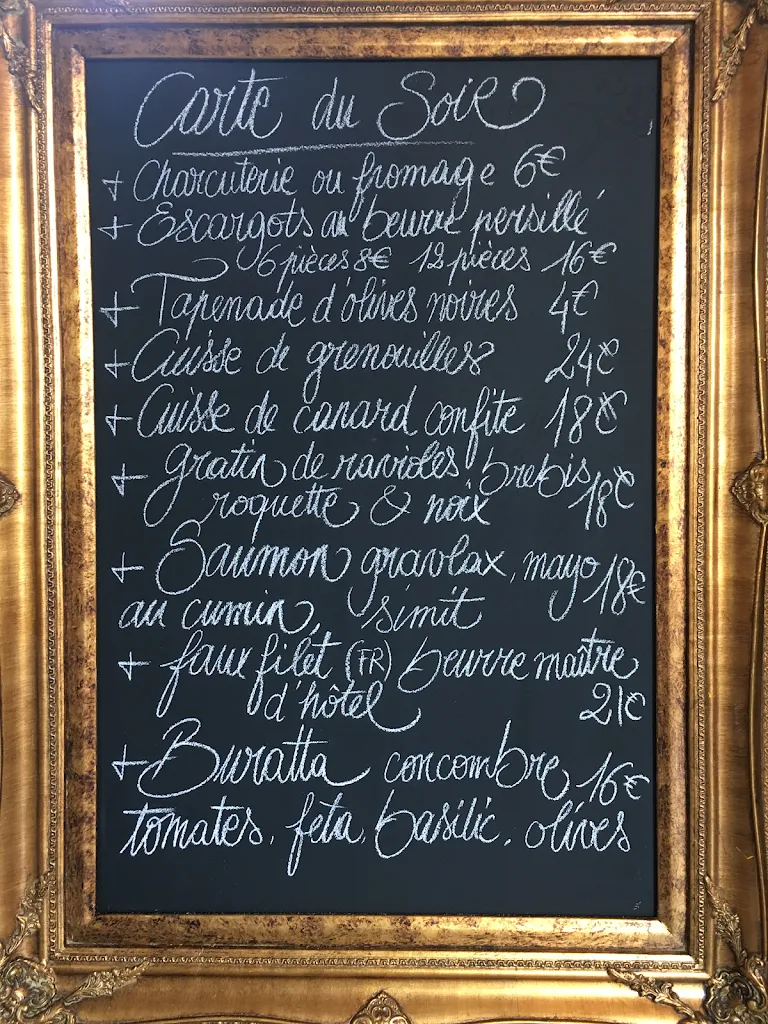 Carte du Soir
+ Charcuterie ou fromage 6€
+ Escargots au beurre persillé
6 pièces 8€ 12 pièces 16€
+ Tapenade d'olives noires 4€
+ Cuisse de grenouilles 24€
+ Cuisse de canard confite 18€
+ gratin de ravioles, brebis, 18€
roquette & noix
+ Saumon gravlax, mayo 18€
au cumin, simit
+ faux filet (FR) beurre maître
d'hôtel 21€
+ Buratta concombre, 16€
tomates, feta, basilic, olives